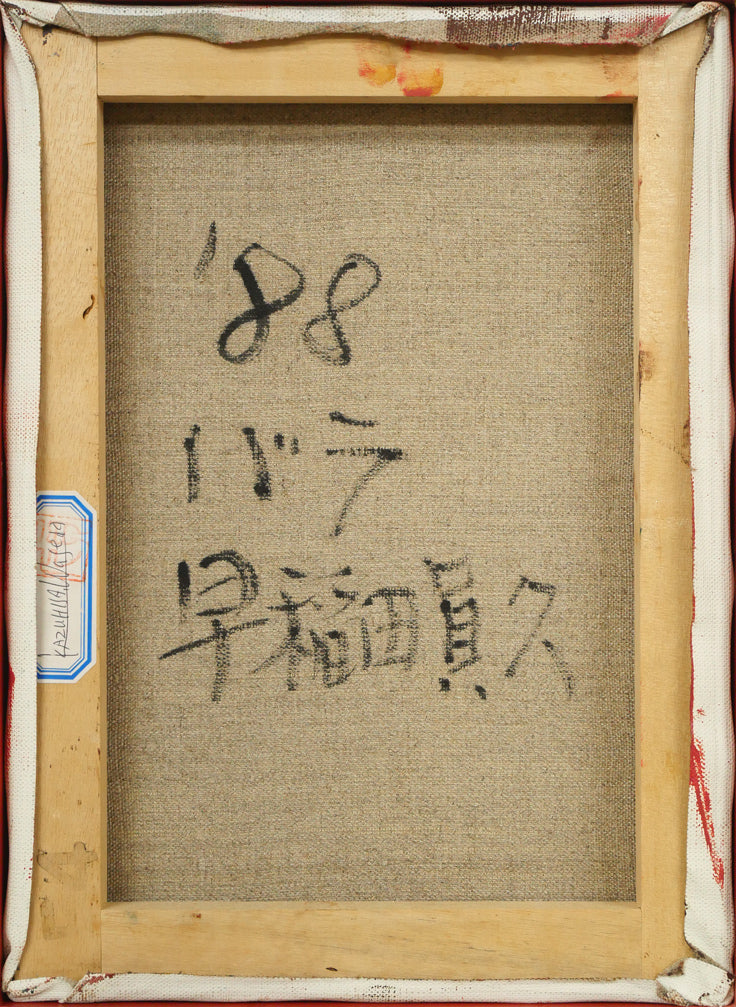 '88
バラ
早稲田員久
KAZUHISA Waseda